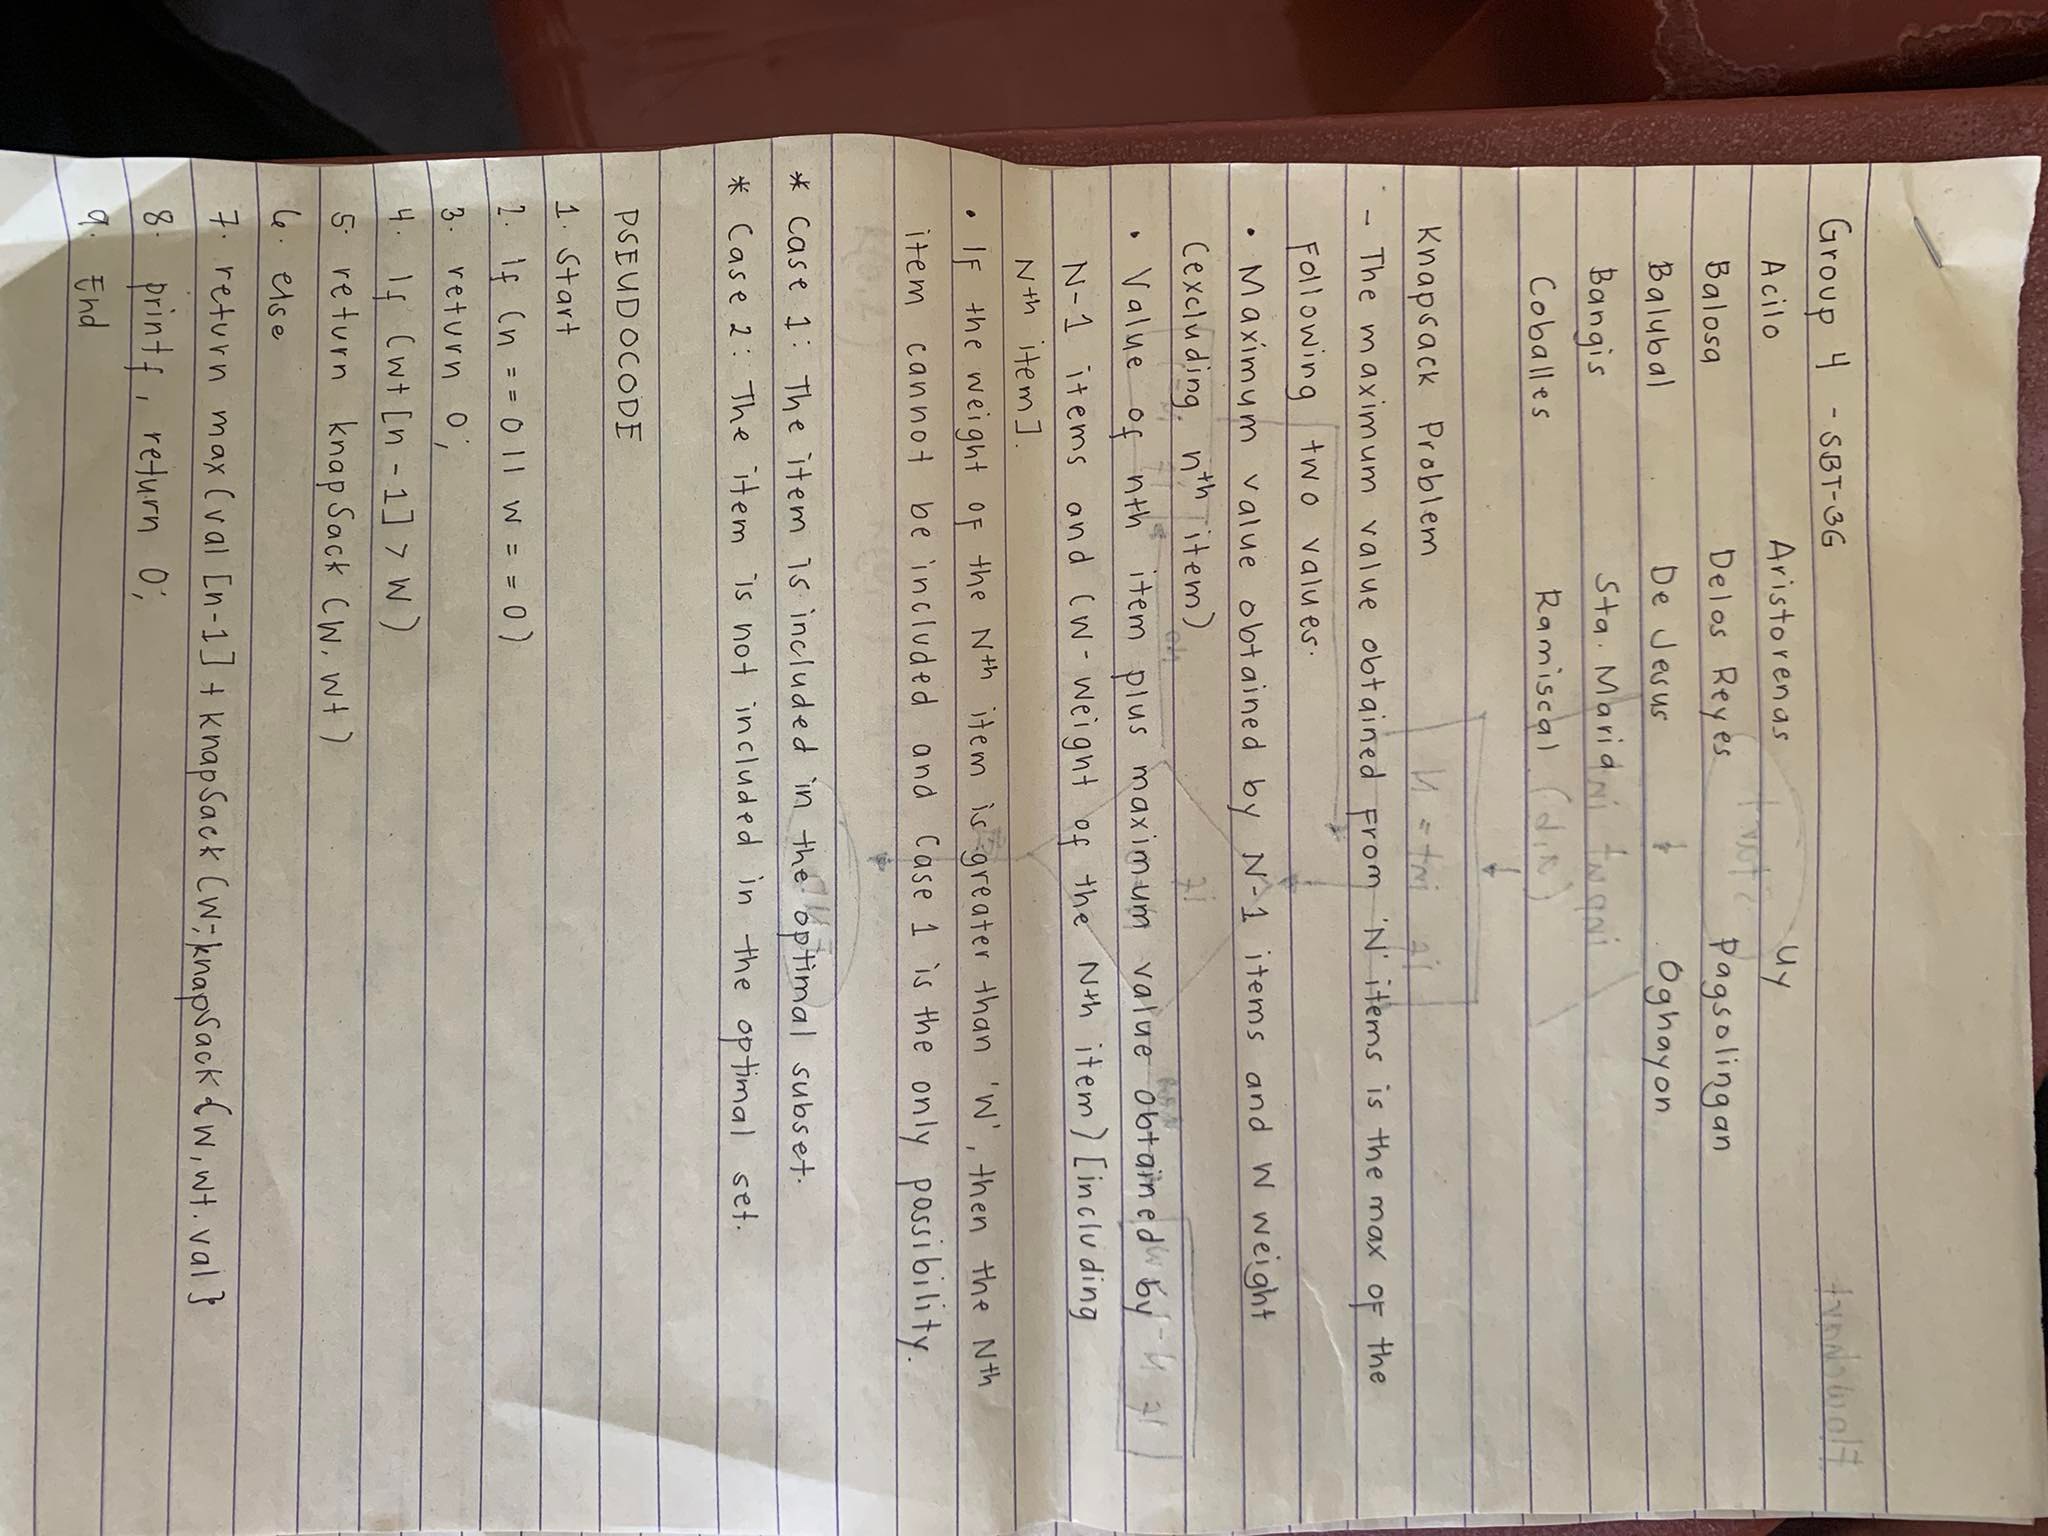 Group 4 - SBT-3G
Acilo Aristorenas Uy
Balosa Delos Reyes Pagsolingan
Balubal De Jesus Oghayon
Bangis Sta. Maria
Coballes Ramiscal
Knapsack Problem
- The maximum value obtained from 'N' items is the max of the
Following two values.
• Maximum value obtained by N-1 items and W weight
(excluding nth item)
• Value of nth item plus maximum value obtained by
N-1 items and (W-weight of the Nth item) [including
Nth item].
• IF the weight of the Nth item is greater than 'W', then the Nth
item cannot be included and case 1 is the only possibility.
* Case 1: The item is included in the optimal subset.
* Case 2: The item is not included in the optimal set.
PSEUDOCODE
1. Start
2. If (n == 0 || W == 0)
3. return 0;
4. If (wt [n-1] > W)
5. return knapSack (W, wt)
6. else
7. return max (val [n-1] + knapSack (W, knapSack {W, wt. val}
8. printf, return 0;
9. End